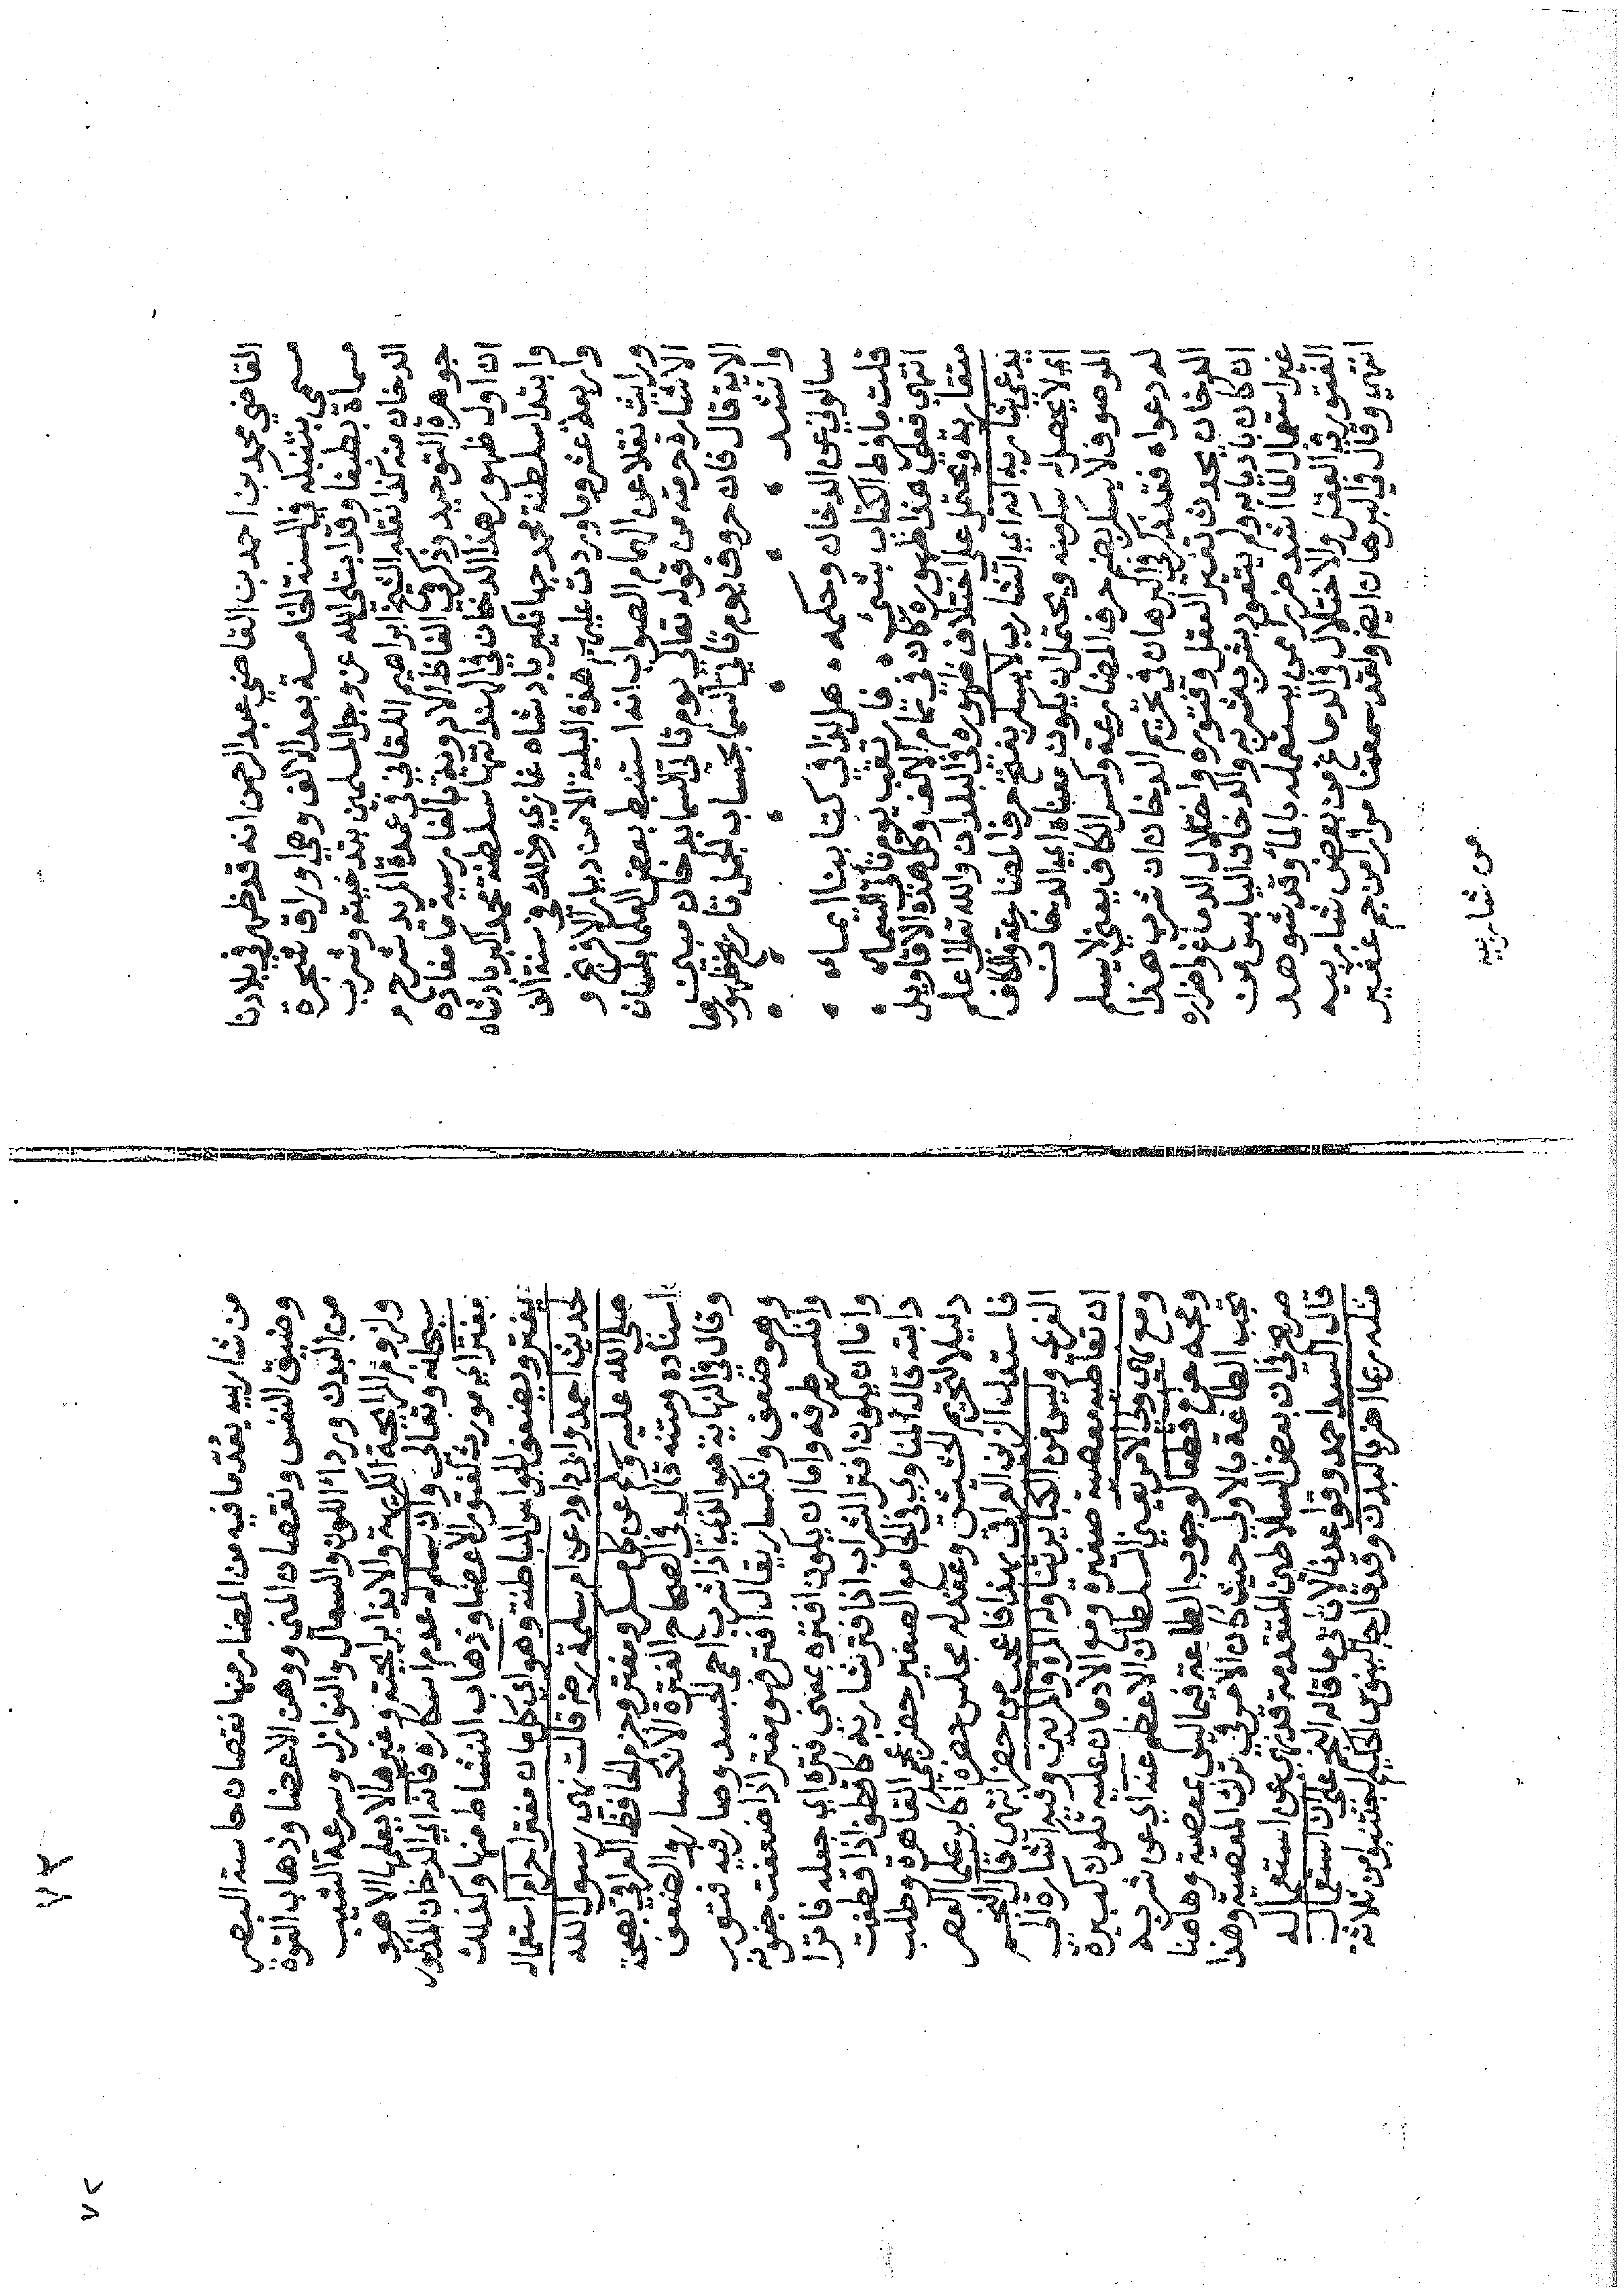 القاضي محمد بن احمد بن القاضي عبد الرحمن انه قد ظهر في بلادنا
مسمى بتنبكه في السنة الخامسة بعد الالف وهي اوراق شجرة
مسماة بطبغا وقد ابتلى الله عز وجل المسلمين بتدخينه وشرب
الدخان منه كذا نقله الشيخ ابراهيم اللقاني في عمدة المريد شرح م
جوهرة التوحيد وذكر في الفاظ الادوية بالفارسية ما مفاده
ان اول ظهور هذا الدخان في الهند انتها سلطنة محمد اكبر بادشاه
وابتدا سلطنة محمد جهانكير بادشاه غازي وذلك في سنة الف
واربعة عشر وما وردت علينا هذه البلية الا من ديار الافرنج و
ورايت نقلا عن الهمام الصواب انه استنبط بعض العلما ملسان
الاشارة حرمته من قوله تعالى يوم تاتي السما بدخان مبين
الاية قال فان حروف يوم تاتي السما بحساب الجمل تاريخ ظهورها
وانشد
سالوني عن الدخان وحكمه ، هل لذا في كتابنا ايماء ،
قلت ما فرط الكتاب بشيء ، فارتقب يوم تاتي السماء
انتهى فعلى هذا ظهوره كان في تمام الالف وكل هذه الاقاويل
متقاربة ويحتمل على اختلاف ظهوره في البلدان والله تعالى اعلم
يدعي شاربه انه اي الشارب لا يسكر بفتح حرف المضارعة والكاف
اي لا يحصل له سكر منه ويحتمل ان يكون معناه اي الدخان
الموصوف لا يسكر بضم حرف المضارعة وكسر الكاف يعني لا يسلم
له دعواه فقد ذكر في البرهان في تحريم الدخان ان شرب هذا
الدخان يحدث تغير العقل وفتوره واختلال الدماغ واضراره
ان كان بادمانه ولم يتعود بشربه والدخان اليابس من
غير استعمال الماا شد ضررا ممن يستعمله بالماء وقد شوهد
الفتور في العقل والاختلال في الدماغ من بعض شاربيه
انتهى وقال في البرهان ايضا ولقد سمعنا مرارا من جم غفير
من شاربيه
من شاربيه يعدد ما فيه من المضار منها نقصان حاسة البصر
وضيق النفس ونقصان المني ووهن الاعضا وذهاب القوة
من البدن ورداءة اللون والسعال والنوازل وسرعة الشيب
ولزوم الرايحة الكريهة والايذا برايحته وغيرها لا يعلمها الا هو
سبحانه وتعالى وان سلم له عدم اسكاره فانه اي الدخان المذكور
مفتر اي مورث لفتور الاعضا وذهاب النشاط منها وكذلك
يفتر ويضعف الحواس الباطنة وهو اي كل ما كان مفترا حرام استعماله
لحديث احمد وابي داود عن ام سلمة رضه قالت نهى رسول الله
صلى الله عليه وسلم عن كل مسكر ومفتر وجزم الحافظ العراقي بصحة
اسناده ومتنه قال في الصحاح الفترة الانكسار والضعف
وقال في النهاية هو الذي اذا شرب احمى الجسد وصار فيه فتور
وهو ضعف وانكسار يقال افتر فهو مفتر اذا ضعفت جفونه
وانكسر طرفه واما ان يكون افتره بمعنى فتره اي جعله فاترا
واما ان يكون افتر الشراب اذا فتر شاربه كاقطف اذا قطفت
دابته قال المناوي في الجامع الصغير حضر عجمي القاهرة وطلب
دليلا لتحريم الحشيش وعقد له مجلس حضره اكابر علما العصر
فاستدل الزين العراقي بهذا فاعجب من حضر انتهى قال النجم
الغزي وليس من الكباير تناوله المرة والمرتين وفيه اشارة الى
ان تعاطيه معصية صغيرة ومع الادمان عليه تكون كبيرة
ومع نهي ولي الامر يعني السلطان الاعظم عنه اي عن شربه
وعجمه حرم قطعا لوجوب الطاعة فيما ليس بمعصية وهاهنا
تجب الطاعة بالاولى حيث كان الامر في ترك المعصية وهذا
صريح في ان بعض السلاطين المتقدمة قد نهى عن استعماله
قال السيد احمد وقواعدنا لا تنافي ما قاله النجم على ان استعمال
مثله ربما اضر بالبدن وقد قال جالينوس الحكيم اجتنبوا من ثلاثة
٧٢
٧٢